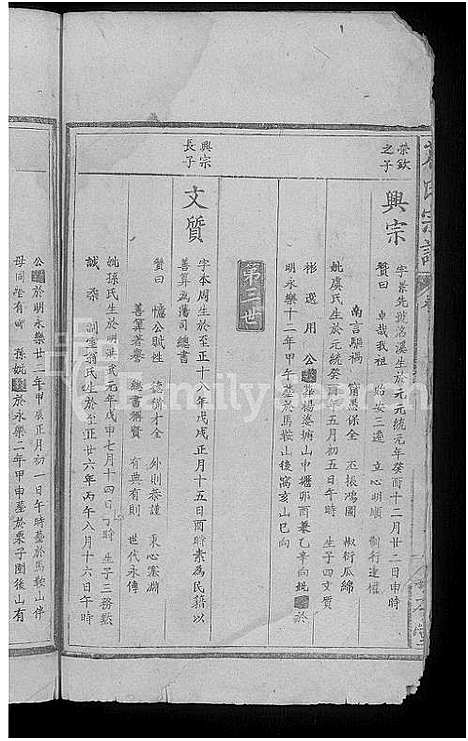 葛氏宗譜
榮欽
之子
興宗
字景先號洛溪生於元元統元年癸酉十二月廿二日申時
贊曰 卓哉我祖 始安三遷 立心明順 制行達權
南言驅禍 甯愚保全 丕振鴻圖 椒衍瓜綿
妣虞氏生於元統癸酉年五月初五日午時 生子四文質
彬 選 用 公葬楊婆塘山中壠卯酉兼乙辛向妣於
明永樂十二年甲午葬於馬鞍山後窩亥山巳向
第三世
興宗
長子
文質
字本周生於至正十八年戊戌正月十五日酉時素為民籍以
善算為藩司總書
贊曰 懷公賦性 德備才全 外則恭謹 秉心塞淵
善算著譽 總書稱賢 有典有則 世代永傳
妣孫氏生於明洪武元年戊申七月十四日丁時 生子三務懃
誠 添 副室翁氏生於至正廿六年丙午八月十六日午時
公於明永樂廿二年甲辰正月初一日午時葬於馬鞍山伴
母同塋有碑 孫妣於永樂二年甲申葬於栗子園後山有
familysearch